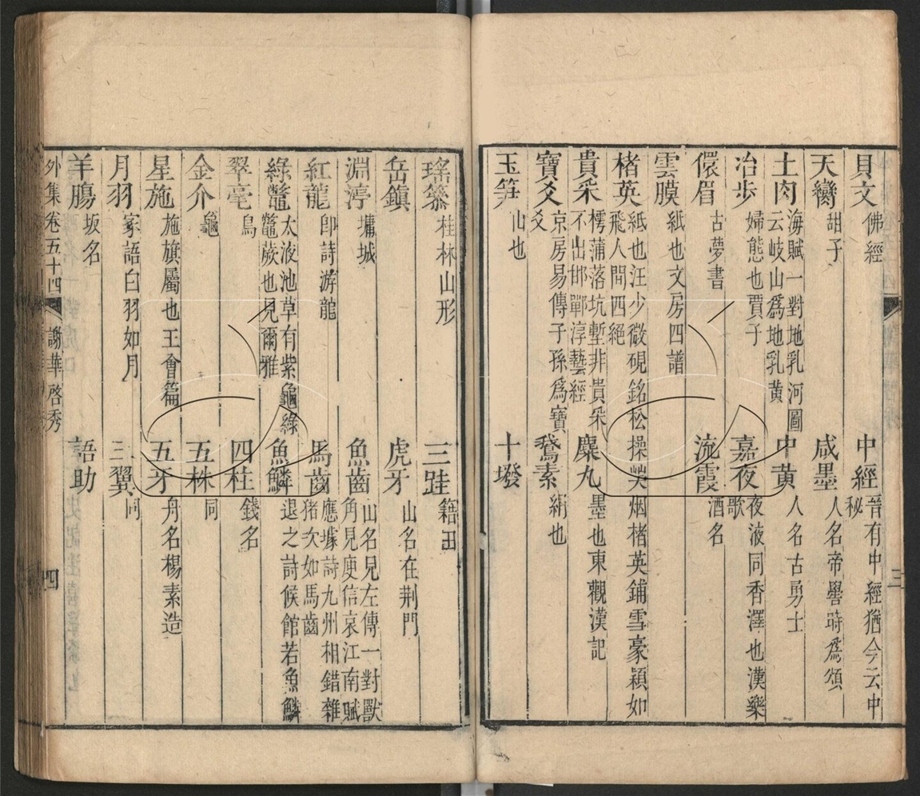 貝文 佛經 中經 晉有中經猶今云中秘
天臠 甜子 咸墨 人名帝嚳時爲頌
土肉 海賦一對地乳河圖云岐山爲地乳黃 中黃 人名古勇士
冶步 婦態也賈子 嘉夜 夜液同香澤也漢樂歌
儇眉 古夢書 流霞 酒名
雲膜 紙也文房四譜
楮英 紙也汪少微硯銘松操凳烟楮英鋪雪豪穎如飛人間四絕
貴采 樗蒲落坑塹非貴采不出邯鄲淳藝經 麋丸 墨也東觀漢記
寶爻 京房易傳子孫爲寶爻 鵞素 絹也
玉笋 山也 十墢
瑤篸 桂林山形 三跬 籍田
岳鎮 虎牙 山名在荆門
淵渟 墉城 魚齒 山名見左傳一對獸角見庾信哀江南賦
紅龍 郎詩游龍 馬齒 應璩詩九州相錯雜猪次如馬齒
綠虌 太液池草有紫龜綠虌蕨也見爾雅 魚鱗 退之詩候館若魚鱗
翠毫 鳥 四柱 錢名
金介 龜 五株 同
星施 施旗屬也王會篇 五牙 舟名楊素造
月羽 家語曰羽如月 三翼 同
羊腸 坂名 語助
外集卷五十四 謝華啓秀 四
三